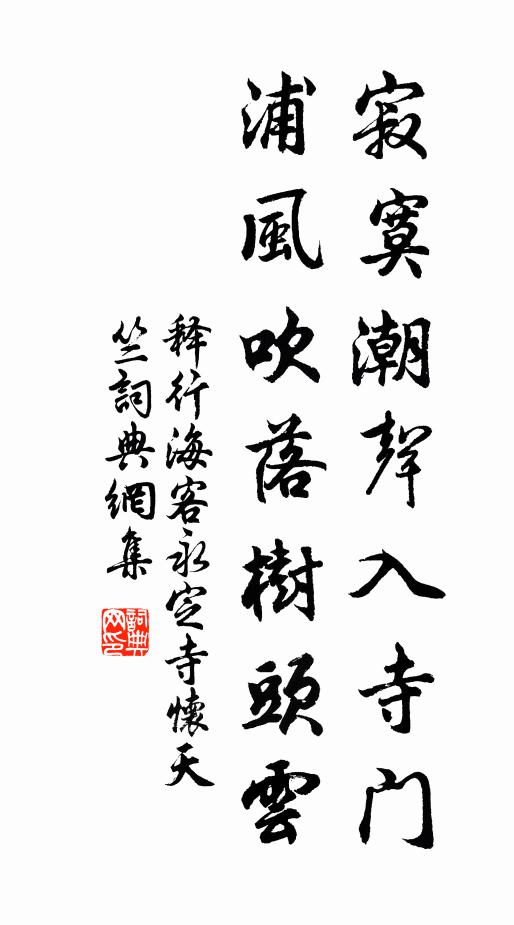 寂寞潮聲入寺門
浦風吹落樹頭雲
释行海客永定寺懷天
竺詞典網集
詞典
网印